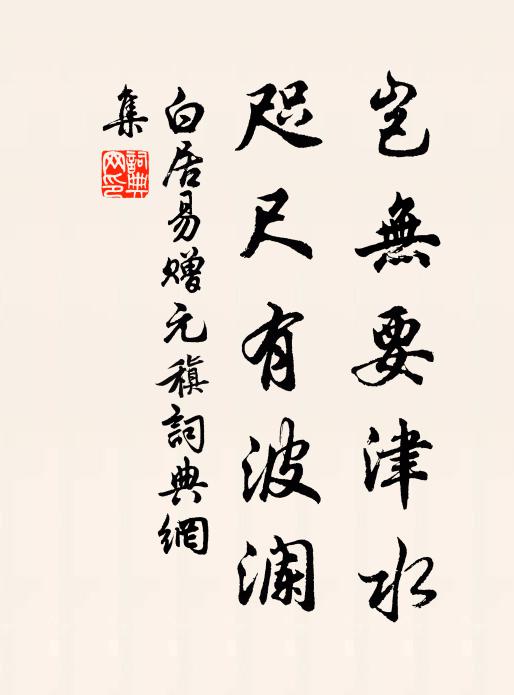 豈無要津水
咫尺有波澜
白居易赠元稹詞典網
集
詞典网印